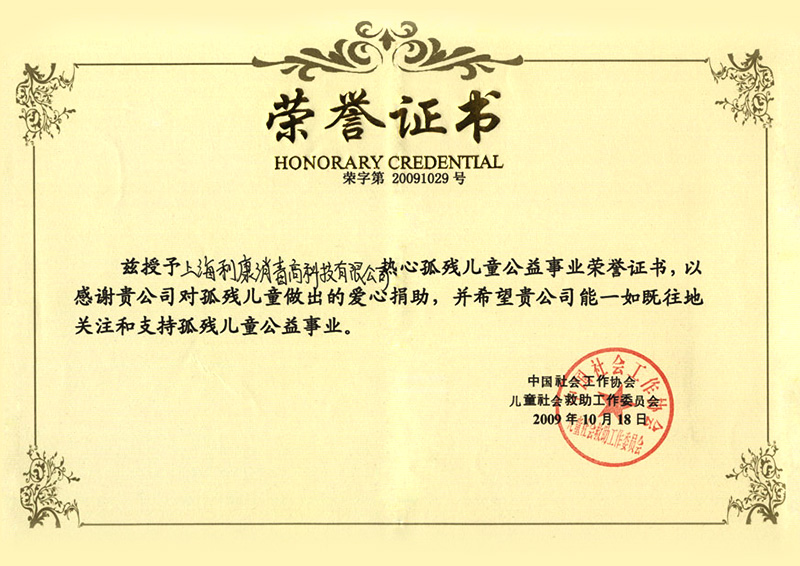 荣誉证书
HONORARY CREDENTIAL
荣字第 20091029 号
兹授予上海利康消毒高科技有限公司热心孤残儿童公益事业荣誉证书，以
感谢贵公司对孤残儿童做出的爱心捐助，并希望贵公司能一如既往地
关注和支持孤残儿童公益事业。
中国社会工作协会
儿童社会救助工作委员会
2009 年 10 月 18 日
中国社会工作协会
儿童社会救助工作委员会